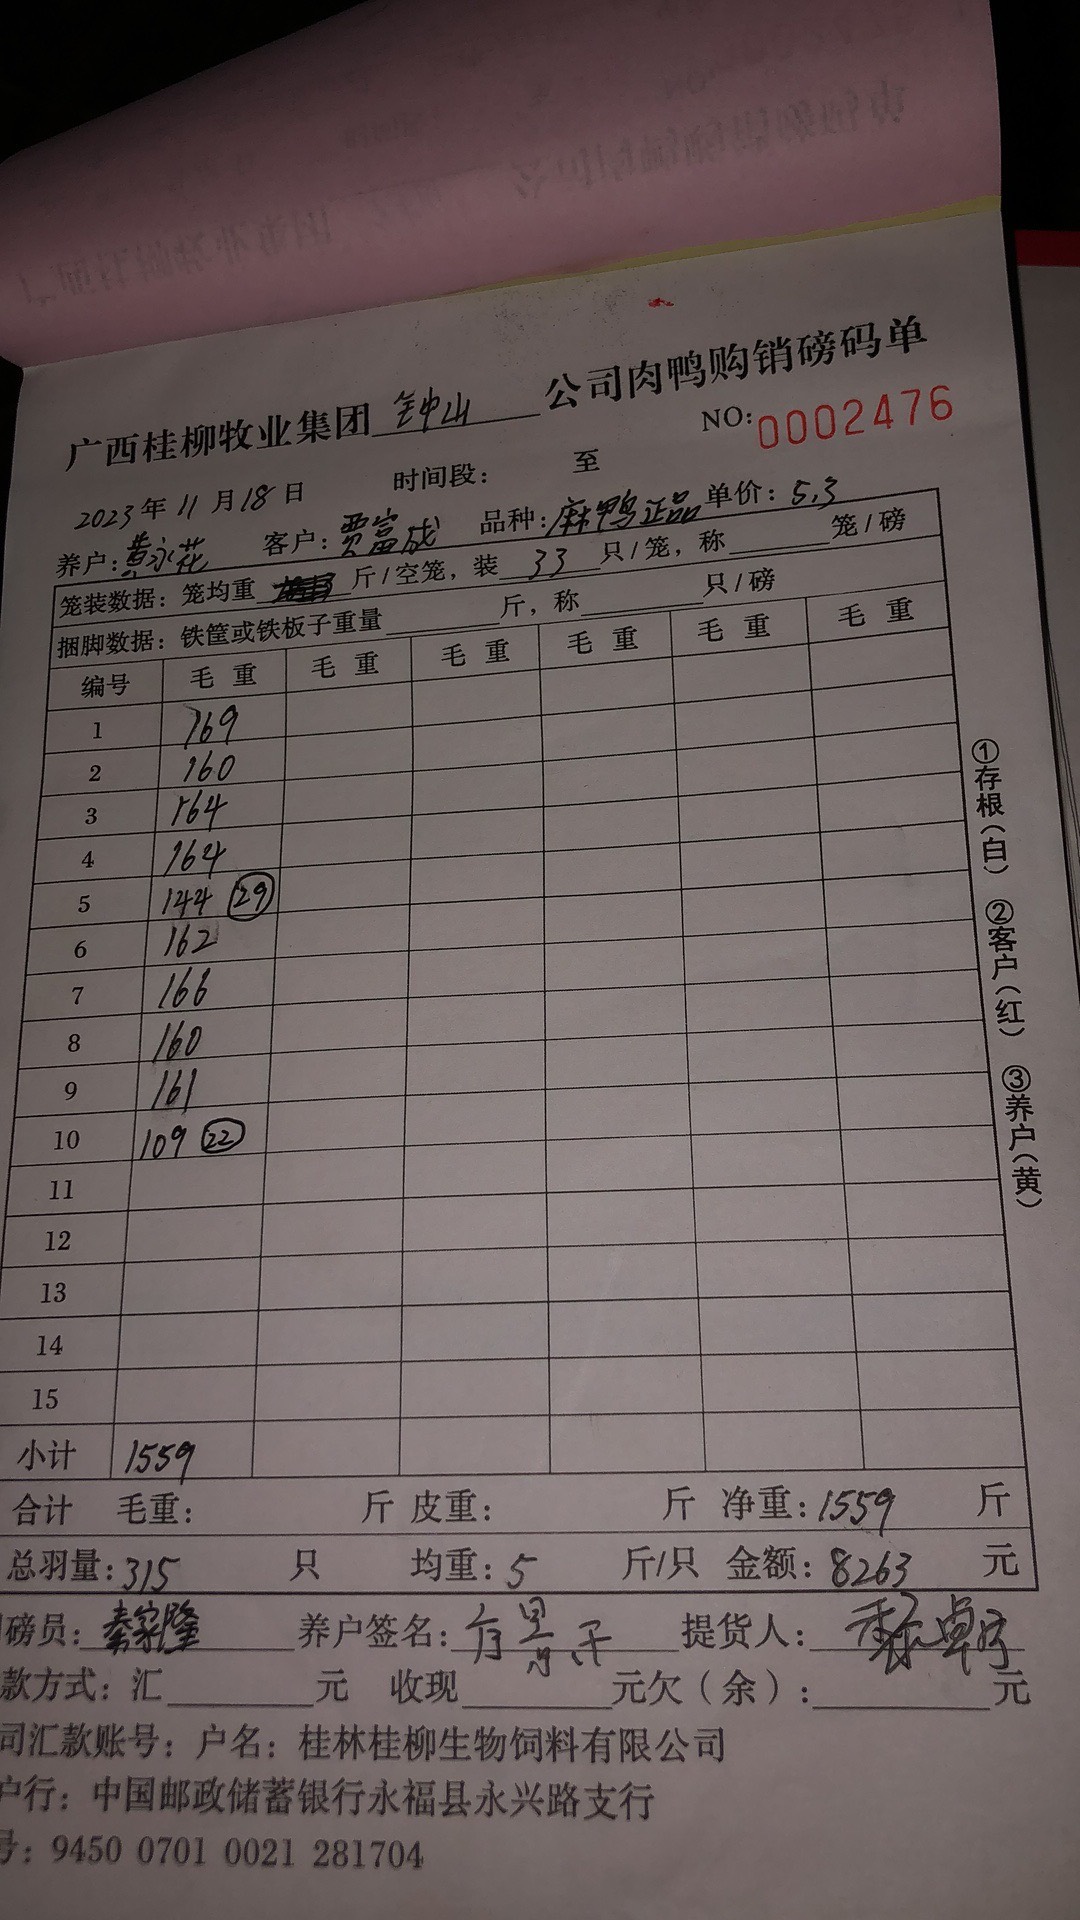 广西桂柳牧业集团 钟山 公司肉鸭购销磅码单
NO: 0002476
2023年 11 月 18 日 时间段: 至
养户: 黄永花 客户: 贾富成 品种: 麻鸭正品 单价: 5.3
笼装数据: 笼均重 斤/空笼, 装 33 只/笼, 称 笼/磅
捆脚数据: 铁筐或铁板子重量 斤, 称 只/磅
编号 毛重 毛重 毛重 毛重 毛重 毛重
1 169
2 160
3 164
4 164
5 144 (29)
6 162
7 166
8 160
9 161
10 109 (22)
11
12
13
14
15
小计 1559
合计 毛重: 斤 皮重: 斤 净重: 1559 斤
总羽量: 315 只 均重: 5 斤/只 金额: 8263 元
磅员: 秦家隆 养户签名: 提货人:
款方式: 汇 元 收现 元欠(余): 元
司汇款账号: 户名: 桂林桂柳生物饲料有限公司
户行: 中国邮政储蓄银行永福县永兴路支行
号: 9450 0701 0021 281704
①存根(白) ②客户(红) ③养户(黄)